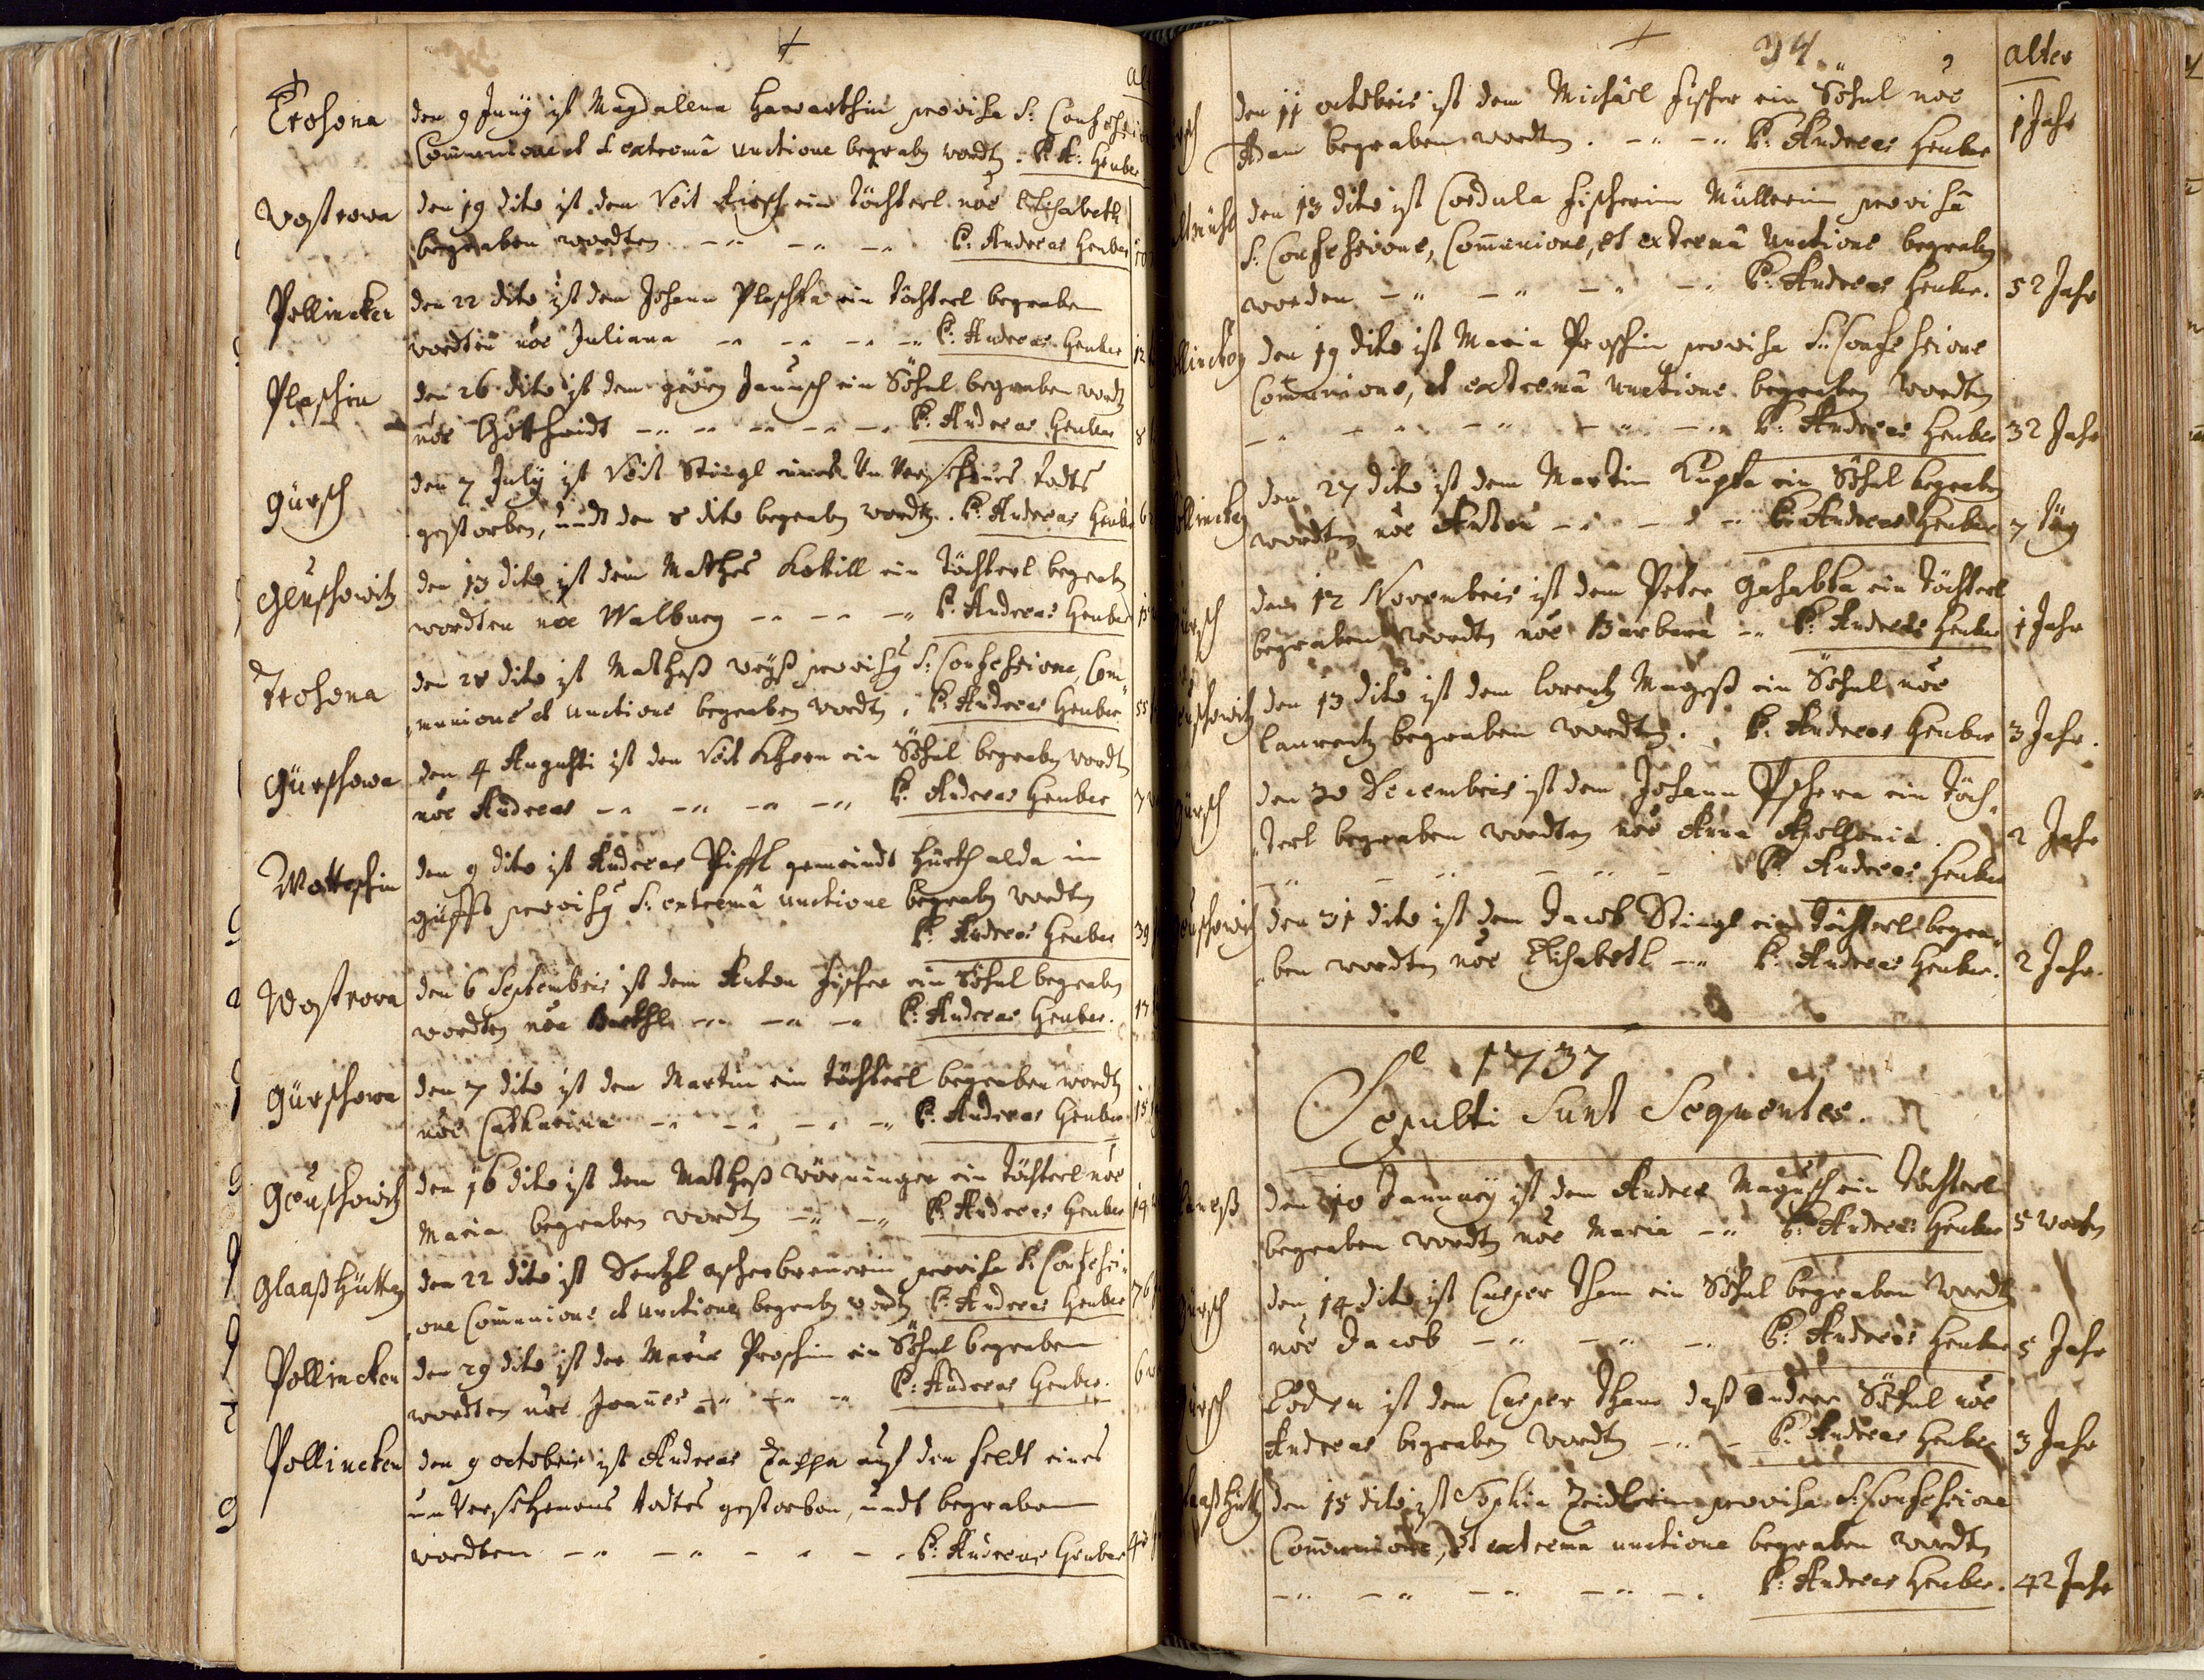 Trohona den 9 Juny ist Magdalena Hawarthin provisa S: Confessio
Communione et extremâ unctione begrabn wordtn. P. A: Heuber
Wostrowa den 19 dito ist dem Veit Kirsch ein Töchterl nõe Elisabeth
begraben wordten P: Andreas Heuber
Pollincken den 22 dito ist dem Johann Plaschka ein Töchterl begraben
wordten nõe Juliana P: Andreas Heuber 12
Plaschin den 26 dito ist dem Görg Janusch ein Söhnl begraben wordtn
nõe Gotthardt P: Andreas Heuber 8
Gürsch den 7 July ist Veit Stingl eines Unversehnes todts
gestorben, undt den 8 dito begrabn wordtn. P: Andreas Heuber 6
Geuschowitz den 13 dito ist dem Mathes Kottill ein Töchterl begrabn
wordten nõe Walburg P: Andreas Heuber
Trohona den 28 dito ist Matheß weyß provisy S: Confessione, Com¬
munione et unctione begraben wordtn. P: Andreas Heuber 55
Gürschowa den 4 Augusti ist den Veit Khern ein Söhnl begrabn wordtn
nõe Andreas P: Andreas Heuber 3
Wottoschin den 9 dito ist Andreas Pissl gemeindt Hürth alda in
provisy S: extremâ unctione begrabn wordten
P: Andreas Heuber 39
Wostrowa den 6 Septembris ist dem Anton Fischer ein Söhnl begrabn
wordten nõe Barthl P: Andreas Heuber. 13
Gürschowa den 7 dito ist dem Martin ein Töchterl begraben wordtn
nõe Catharina P: Andreas Heuber 15
Geuschowitz den 16 dito ist dem Matheß Wörninger ein Töchterl nõe
Maria begraben wordtn P: Andreas Heuber 14
Glaaßhütten den 22 dito ist provisa S: Confessi¬
one Communione et unctione begrabn wordtn P: Andreas Heuber 76
Pollincken den 29 dito ist der Maria Proschin ein Söhnl begraben
wordten nõe Joannes P: Andreas Heuber. 6
Pollincken den 9 octobris ist Andreas Zappa auf den feldt eines
unversehenens todtes gestorben, undt begraben
wordten P: Andreas Heuber
34
alter
den 11 octobris ist dem Michäel Fischer ein Söhnl nõe
Adam begraben wordtn. P: Andreas Heuber 1 Jahr
den 13 dito ist Cordula Fischerin Müllerin provisâ
S: Confessione, Communione, et extremâ Unctione begrabn
worden P: Andreas Heuber. 52 Jahr
den 19 dito ist Maria Proschin provisa S: Confessione
Communione, et extremâ unctione begraben wordten
P: Andreas Heuber 32 Jahr
den 27 dito ist dem Martin Kupka ein Söhnl begrabn
wordten nõe Anton P: Andreas Heuber 7 täg
den 12 Novembris ist dem Peter Gahabka ein Töchterl
begraben wordtn nõe Barbara P: Andreas Heuber 1 Jahr
den 13 dito ist dem Lorentz Mageß ein Söhnl nõe
Laurentz begraben wordtn. P: Andreas Heuber 3 Jahr.
den 30 Decembris ist dem Johann Pschera ein Töch¬
terl begraben wordten nõe Anna Apollonia. 2 Jahr
P: Andreas Heuber
den 31 dito ist dem Jacob Stingl ein Töchterl begra¬
ben wordten nõe Elisabeth P: Andreas Heuber. 2 Jahr.
1737
Sepulti Sunt Sequentes.
den 10 January ist dem Andree Magusch ein Töchterl
begraben wordtn nõe Maria P: Andreas Heuber 5 wochn
den 14 dito ist Casper Tham ein Söhnl begraben wordtn
nõe Jacob P: Andreas Heuber 5 Jahr
Eodem ist dem Casper Tham daß andere Söhnl nõe
Andreas begraben wordtn P: Andreas Heuber 3 Jahr
den 15 dito ist Sophia Zeidlerin provisa S: Confessione
Communione, et extremâ unctione begraben wordtn
P: Andreas Heuber. 42 Jahr